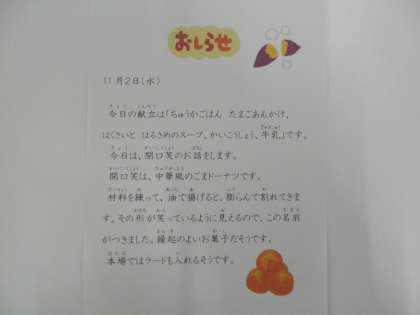 おしらせ
11月2日(水)
今日の献立は「ちゅうかごはん たまごあんかけ、
はくさいと はるさめのスープ、かいこうしょう、牛乳」です。
今日は、開口笑のお話をします。
開口笑は、中華風のごまドーナツです。
材料を練って、油で揚げると、膨らんで割れてきま
す。その形が笑っているように見えるので、この名前
がつきました。縁起のよいお菓子だそうです。
本場ではラードも入れるそうです。